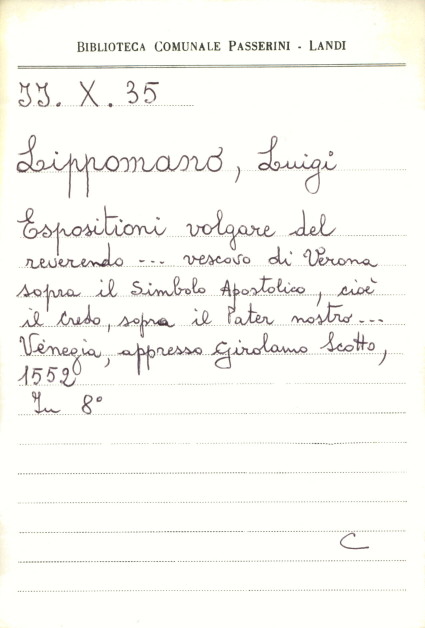 BIBLIOTECA COMUNALE PASSERINI - LANDI
JJ. X. 35
Lippomano, Luigi
Espositioni volgare del
reverendo --- vescovo di Verona
sopra il Simbolo Apostolico, cioè
il Credo, sopra il Pater nostro---
Venegia, appresso Girolamo Scotto,
1552
In 8°
C